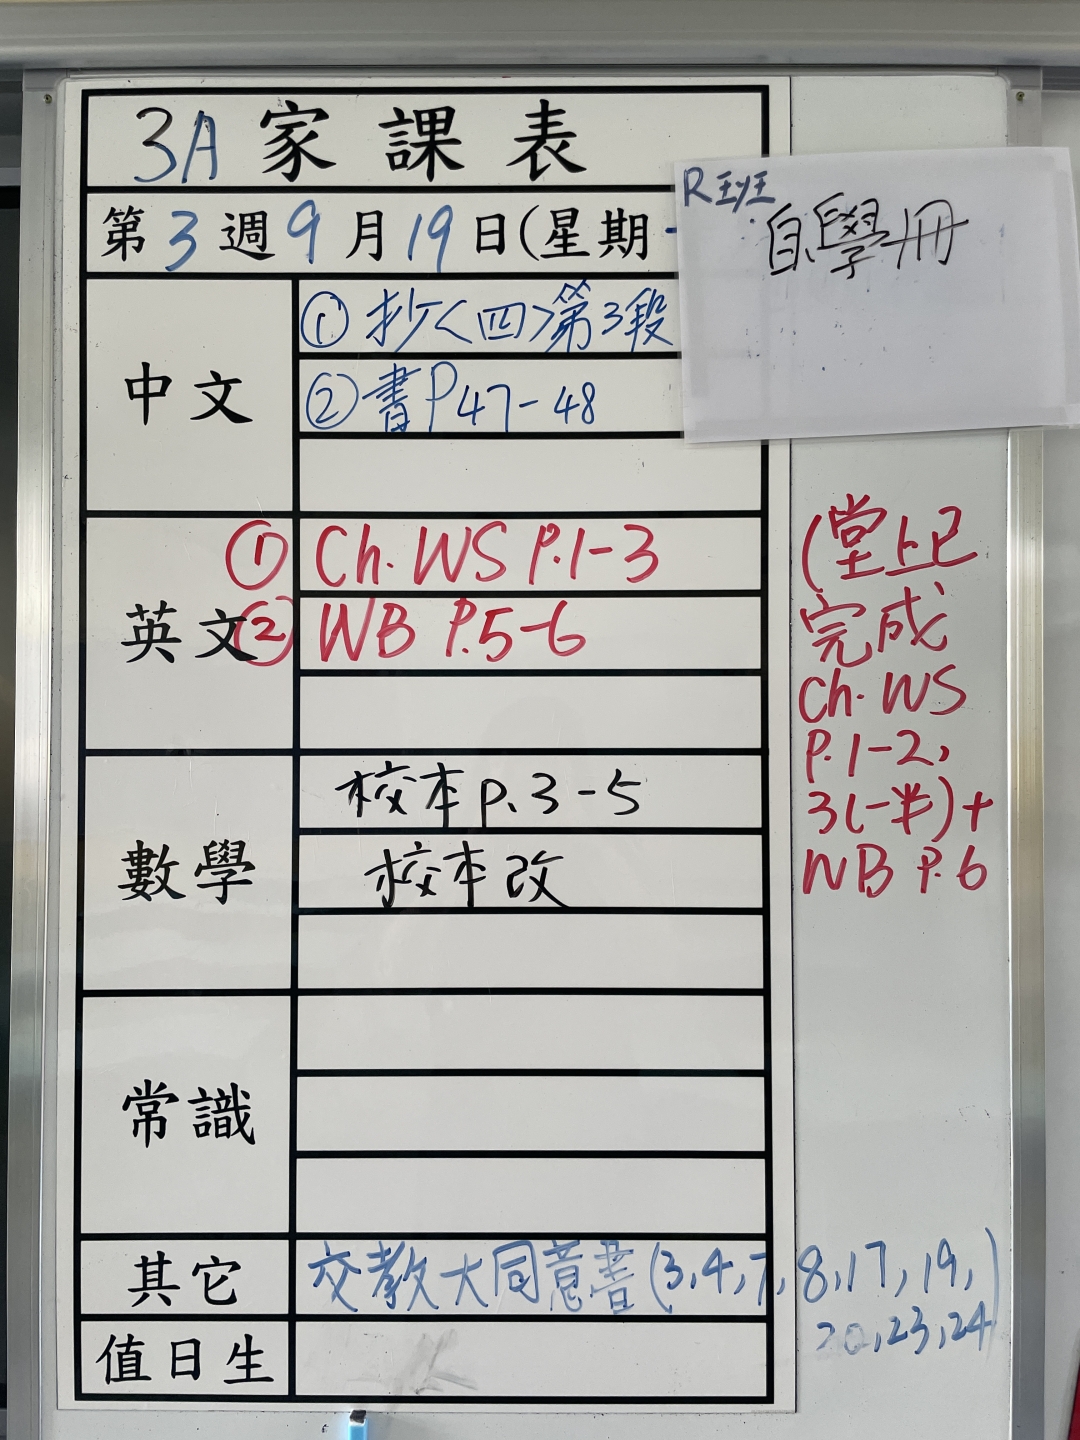 3A 家課表
第3週9月19日(星期
R班
自學冊
中文
①抄<四>第3段
②書P47-48
英文
① Ch. WS P.1-3
② WB P.5-6
(堂上已
完成
Ch. WS
P.1-2,
3(一半)+
WB P.6
數學
校本p.3-5
校本改
常識
其它
交教大同意書(3,4,7,8,17,19,
20,23,24)
值日生